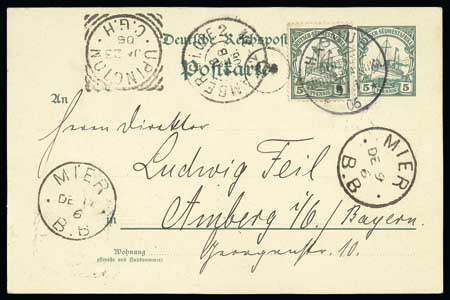 Deutsche Reichspost
Postkarte
UPINGTON
23
06
C.G.H.
AMBERG
DEUTSCH-SÜDWESTAFRIKA
5 PFENNIG 5
5 5
06
An
Herrn Direktor
Ludwig Feil
in Amberg i/O. / Bayern.
Wohnung
(Straße und Hausnummer)
Georgenstr. 10.
MIER
DE 9
6
B.B
MIER
DE
6
B.B